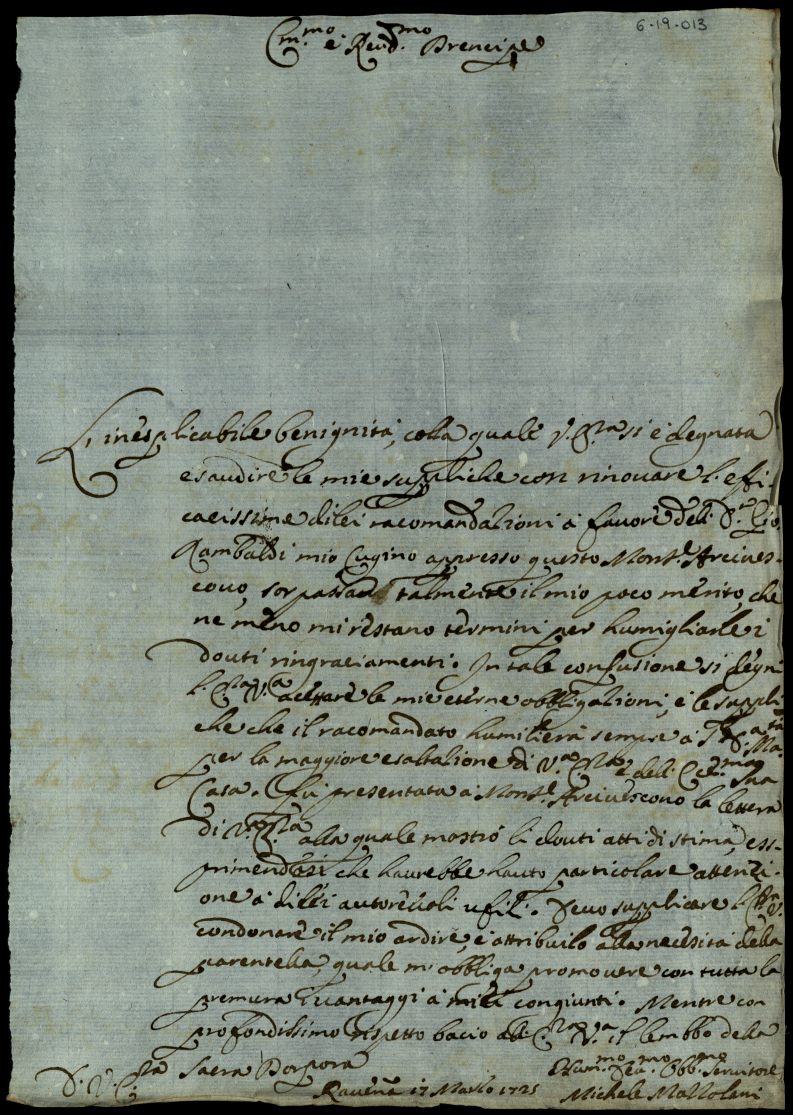 6-19-013
Em.mo e Reud.mo Prencipe
L'inesplicabile benignità, colla quale V. Em.za si è degnata
esaudire le mie suppliche con rinouare l'effi-
cacissime di lei racomandazioni à fauore del S.r Gio.
Rambaldi mio Cugino appresso questo Mons.r Arciues-
couo, sorpassa talmente il mio poco merito, che
ne meno mi restano termini per humigliarle i
douti ringraciamenti. In tale confusione si degni
l'Em.za V.a acettare le mie eterne obbligazioni, e le suppli-
che che il racomandato humilierà sempre à
per la maggiore esaltazione di V.a Em.za e dell' Ecc.ma Sua
Casa. Fù presentata à Mons.r Arciuescouo la lettera
di V.a Em.za alla quale mostrò li douti atti di stima, ess-
primendosi che haurebbe hauto particolare attenzi-
one à di lei autoreuoli ufizi. Deuo supplicare
condonare il mio ardire, e attribuilo alla necesità della
parentella, quale mi obbliga promouere con tutta la
premura i uantaggi à miei congiunti. Mentre con
profondissimo rispetto bacio all' Em.za V.a il lembbo della
Sacra Porpora
D. V. Em.za
Rauenna 17 Marzo 1725
Hum.mo Deu.mo Obb.mo Seruitore
Michele Mazzolani